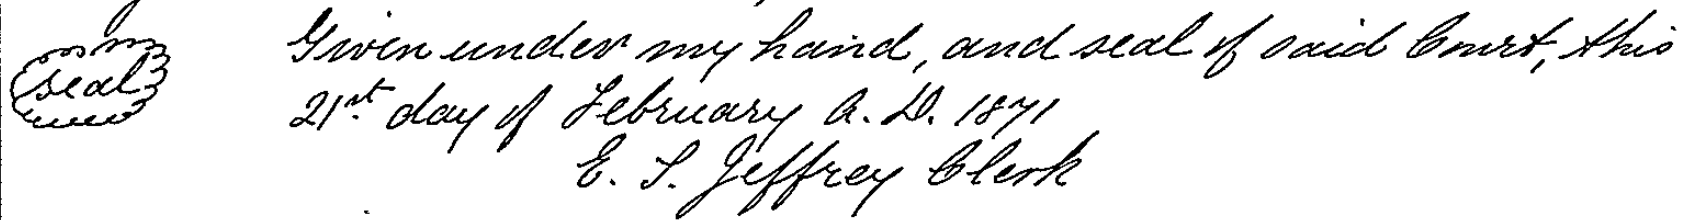 Given under my hand, and seal of said Court, this
seal
21st day of February A. D. 1871
E. S. Jeffrey Clerk